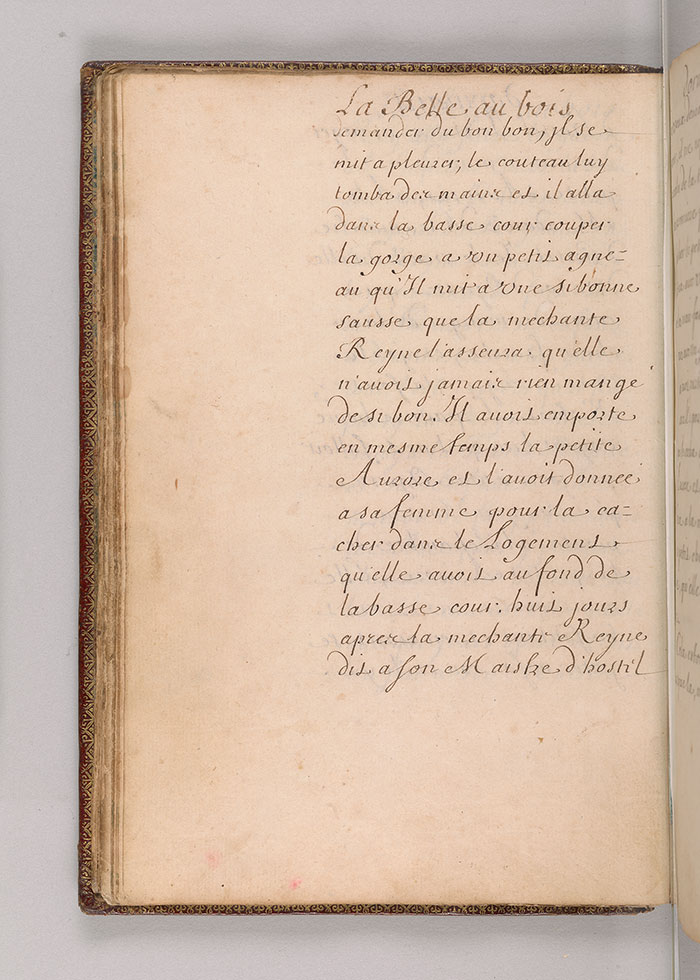 La Belle au bois
demander du bon bon, jl se
mit a pleurer, le couteau luy
tomba des mains et il alla
dans la basse cour couper
la gorge a vn petit agne=
au qu'Il mit a vne si bonne
sausse que la mechante
Reyne l'asseura qu'elle
n'auoit jamais rien mangé
de si bon. Il auoit emporte
en mesme temps la petite
Aurore et l'auoit donneé
a sa femme pour la ca=
cher dans le Logement
qu'elle auoit au fond de
la basse cour. huit jours
apres la mechante Reyne
dit a son Maistre d'hostel